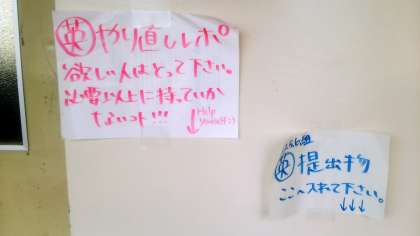 英 やり直しレポ
欲しい人はとって下さい。
必要以上に持っていか
ないコト!!!
↓ Help
yourself:)
英 提出物
ここへ入れて下さい。
↓↓↓